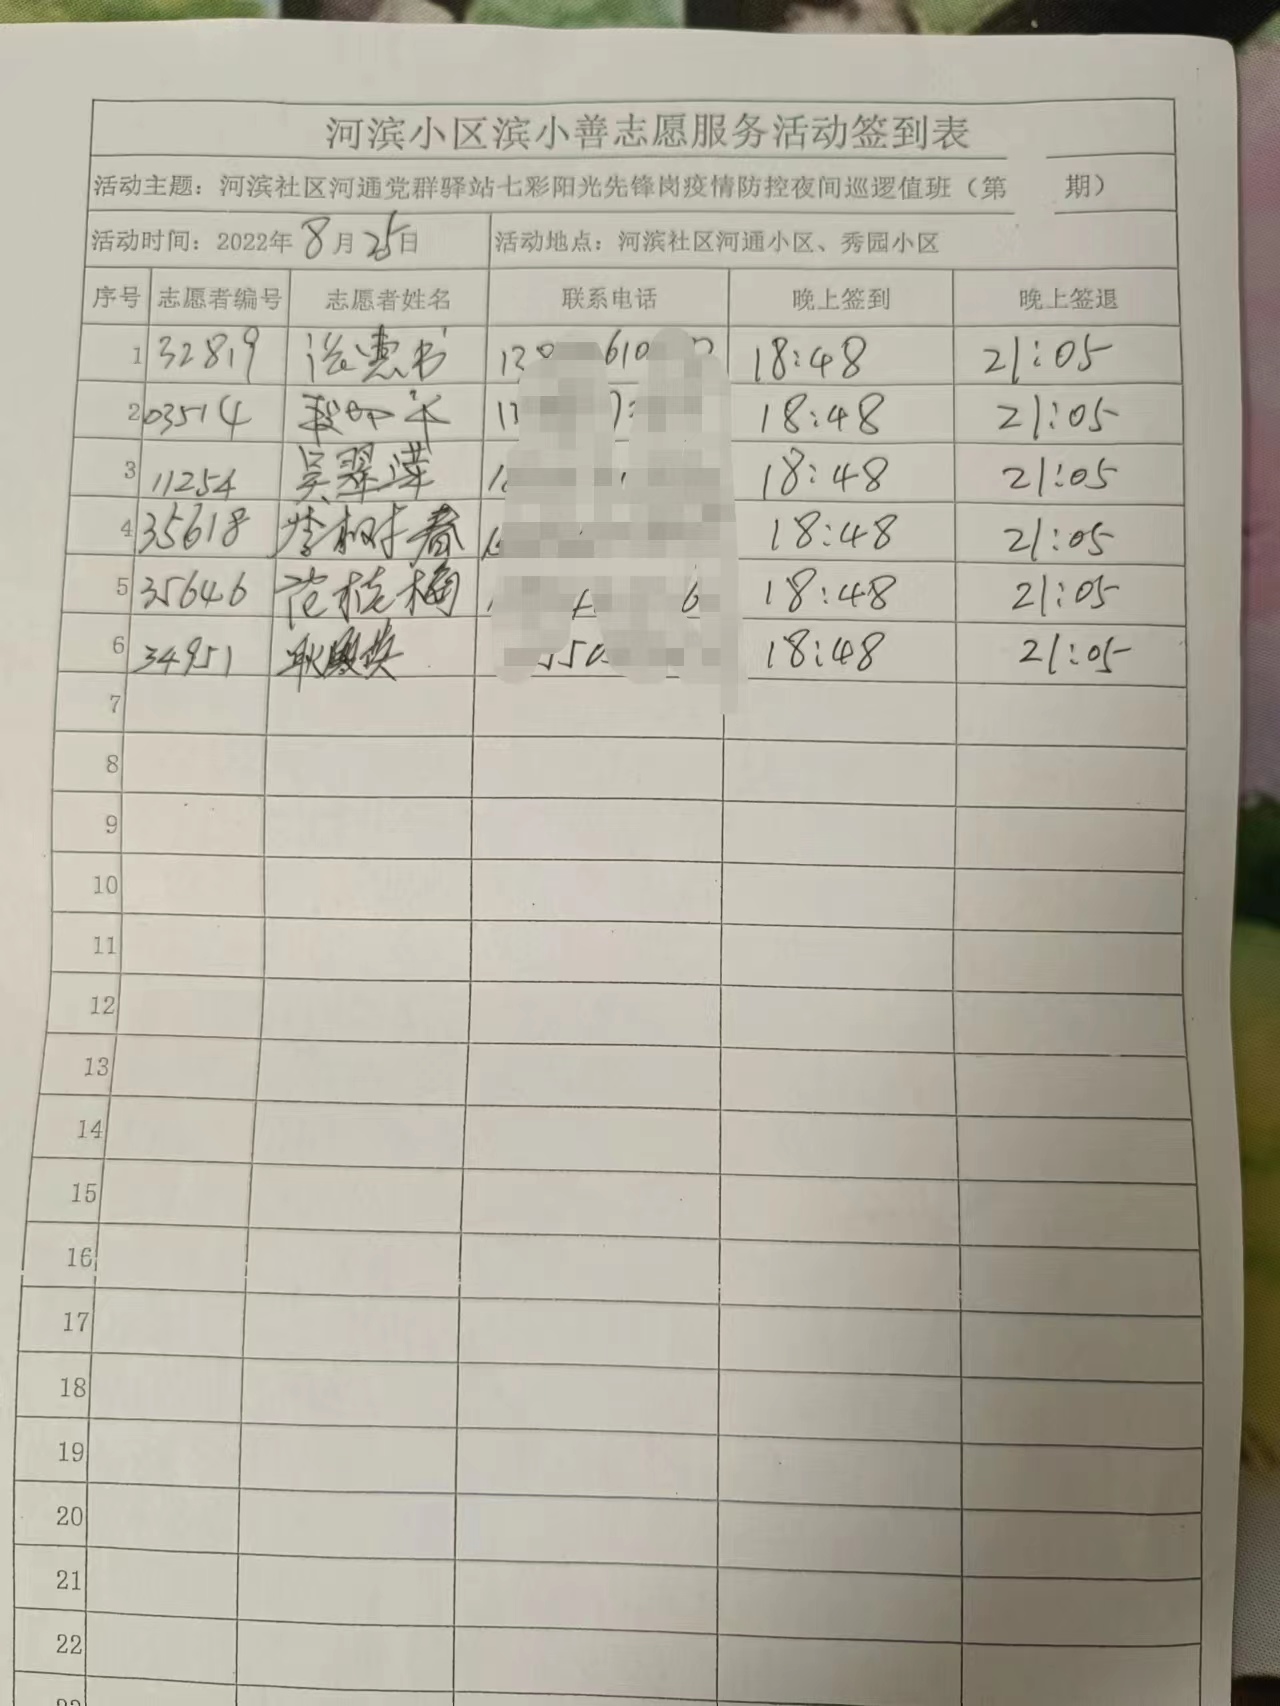 河滨小区滨小善志愿服务活动签到表
活动主题：河滨社区河通党群驿站七彩阳光先锋岗疫情防控夜间巡逻值班（第 期）
活动时间：2022年8月25日 活动地点：河滨社区河通小区、秀园小区
序号 志愿者编号 志愿者姓名 联系电话 晚上签到 晚上签退
1 32819 18:48 21:05
2 03514 18:48 21:05
3 11254 吴翠萍 18:48 21:05
4 35618 李树春 18:48 21:05
5 35646 范桂梅 18:48 21:05
6 34951 18:48 21:05
7
8
9
10
11
12
13
14
15
16
17
18
19
20
21
22
23